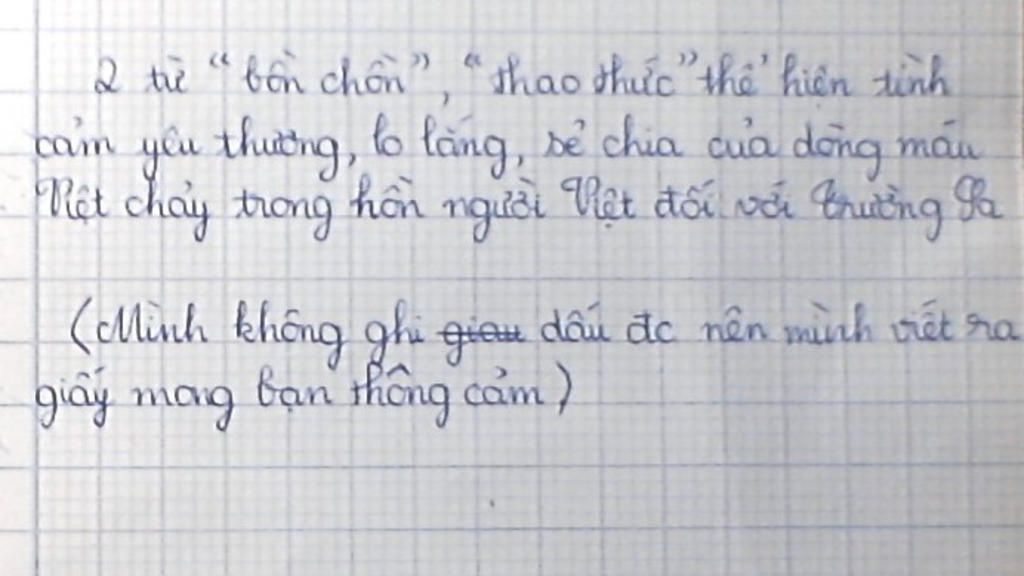 2 từ "bồn chồn", "thao thức" thể hiện tình
cảm yêu thương, lo lắng, sẻ chia của dòng máu
Việt chảy trong hồn người Việt đối với Trường Sa
(Mình không ghi giau dấu đc nên mình viết ra
giấy mong bạn thông cảm)